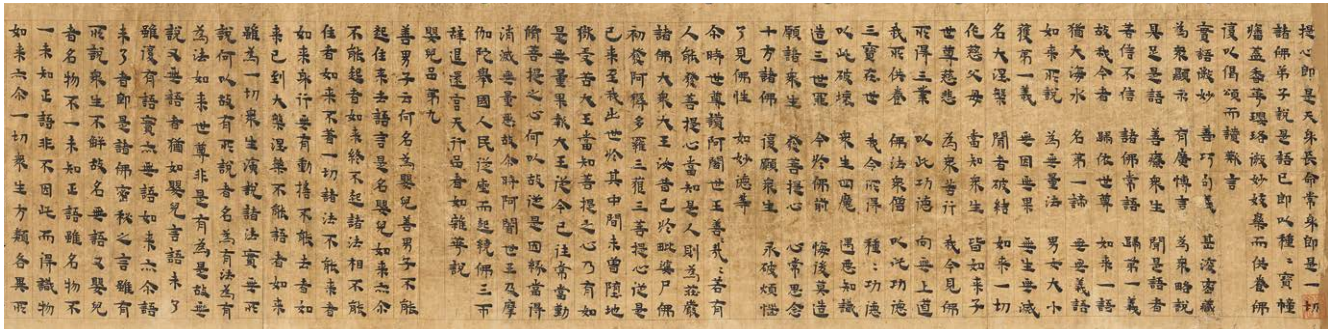 提心即是天身長命常身即是一切
諸佛弟子說是語已即以種〻寶幢
幡蓋香華瓔珞微妙妓樂而供養佛
復以偈頌而讚歎言
實語微妙 善巧句義 甚深密藏
為衆顯示 有廣博言 為衆略說
具足是語 善療衆生 聞是語者
善信不信 諸佛常語 歸第一義
故我今者 歸依世尊 如來一語
猶大海水 名第一諦 無無義語
如來所說 為無量法 男女大小
獲第一義 無因無果 無生無滅
名大涅槃 聞者破結 如來一切
作慈父母 當知衆生 皆如來子
世尊慈悲 為衆苦行 我今見佛
所得三業 以此功德 向無上道
我所供養 佛法衆僧 以此功德
三寶在世 我今所得 種〻功德
以此破壞 衆生四魔 遇惡知識
造三世罪 今於佛前 悔後莫造
願諸衆生 發菩提心 心常思念
十方諸佛 復願衆生 永破煩惱
了見佛性 如妙德等
尒時世尊讚阿闍世王善哉〻若有
人能發菩提心當知是人則為莊嚴
諸佛大衆大王汝昔已於毗婆尸佛
初發阿耨多羅三藐三菩提心從是
已來至我出世於其中間未曾墮地
獄受苦大王當知菩提之心乃有如
是無量果報大王從今已往常當勤
脩菩提之心何以故從是因緣當得
消滅無量惡故尒時阿闍世王及摩
伽陀舉國人民從座而起繞佛三帀
辭退還宮天行品者如雜華說
嬰兒品第九
善男子云何名為嬰兒善男子不能
起住來去語言是名嬰兒如來亦尒
不能起者如來終不起諸法相不能
住者如來不著一切諸法不能來者
如來身行無有動搖不能去者如
來已到大般涅槃不能語者如來
雖為一切衆生演說諸法實無所
說何以故有所說者名為有法為有
為法如來世尊非是有為是故無
說又無語者猶如嬰兒言語未了
雖復有語實亦無語如來亦尒語
未了者即是諸佛密秘之言雖有
所說衆生不解故名無語又嬰兒
者名物不一未知正語雖名物不
一未知正語非不因此而得識物
如來亦尒一切衆生方類各異所